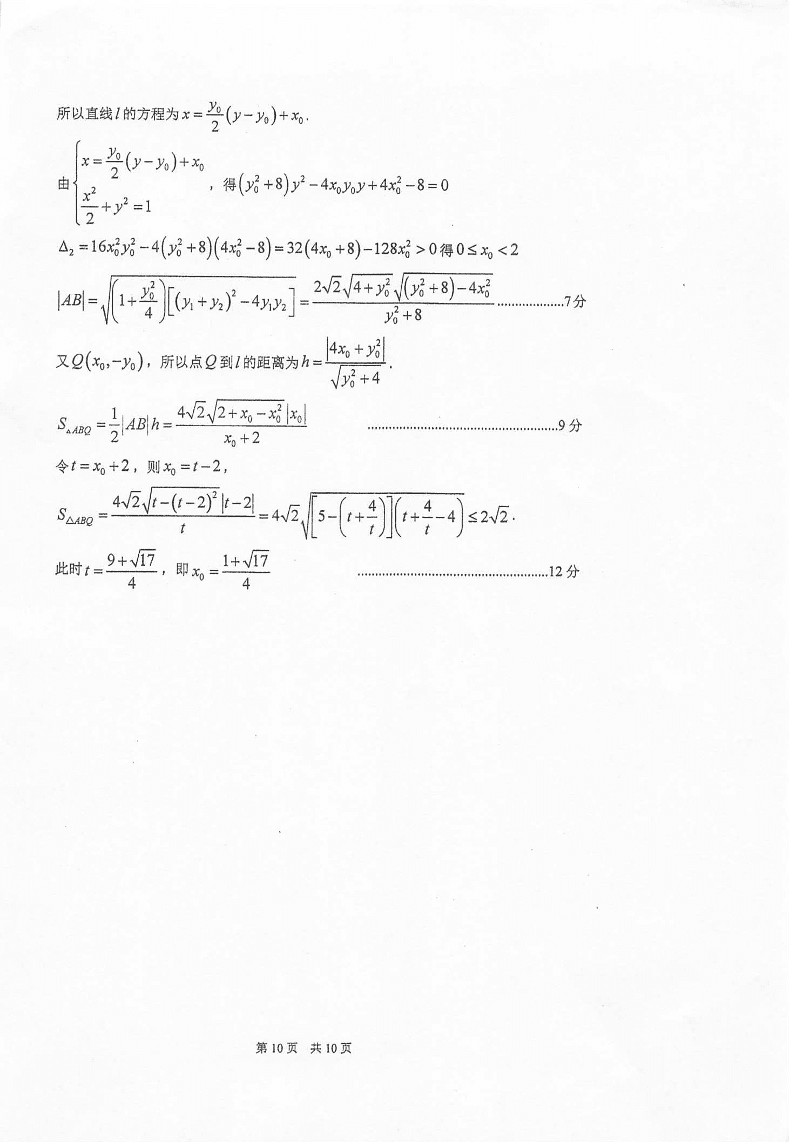 所以直线 $l$ 的方程为 $x=\frac{y_0}{2}(y-y_0)+x_0$.
由 $\begin{cases} x=\frac{y_0}{2}(y-y_0)+x_0 \\ \frac{x^2}{2}+y^2=1 \end{cases}$，得 $(y_0^2+8)y^2-4x_0y_0y+4x_0^2-8=0$
$\Delta_2=16x_0^2y_0^2-4(y_0^2+8)(4x_0^2-8)=32(4x_0+8)-128x_0^2>0$ 得 $0\leq x_0<2$
$|AB|=\sqrt{\left(1+\frac{y_0^2}{4}\right)\left[(y_1+y_2)^2-4y_1y_2\right]}=\frac{2\sqrt{2}\sqrt{4+y_0^2}\sqrt{(y_0^2+8)-4x_0^2}}{y_0^2+8}$ ...................7分
又 $Q(x_0,-y_0)$，所以点 $Q$ 到 $l$ 的距离为 $h=\frac{|4x_0+y_0^2|}{\sqrt{y_0^2+4}}$.
$S_{\triangle ABQ}=\frac{1}{2}|AB|h=\frac{4\sqrt{2}\sqrt{2+x_0-x_0^2}|x_0|}{x_0+2}$ ......................................................9分
令 $t=x_0+2$，则 $x_0=t-2$，
$S_{\triangle ABQ}=\frac{4\sqrt{2}\sqrt{t-(t-2)^2}|t-2|}{t}=4\sqrt{2}\sqrt{\left[5-\left(t+\frac{4}{t}\right)\right]\left(t+\frac{4}{t}-4\right)}\leq 2\sqrt{2}$.
此时 $t=\frac{9+\sqrt{17}}{4}$，即 $x_0=\frac{1+\sqrt{17}}{4}$ ......................................................12分
第10页 共10页